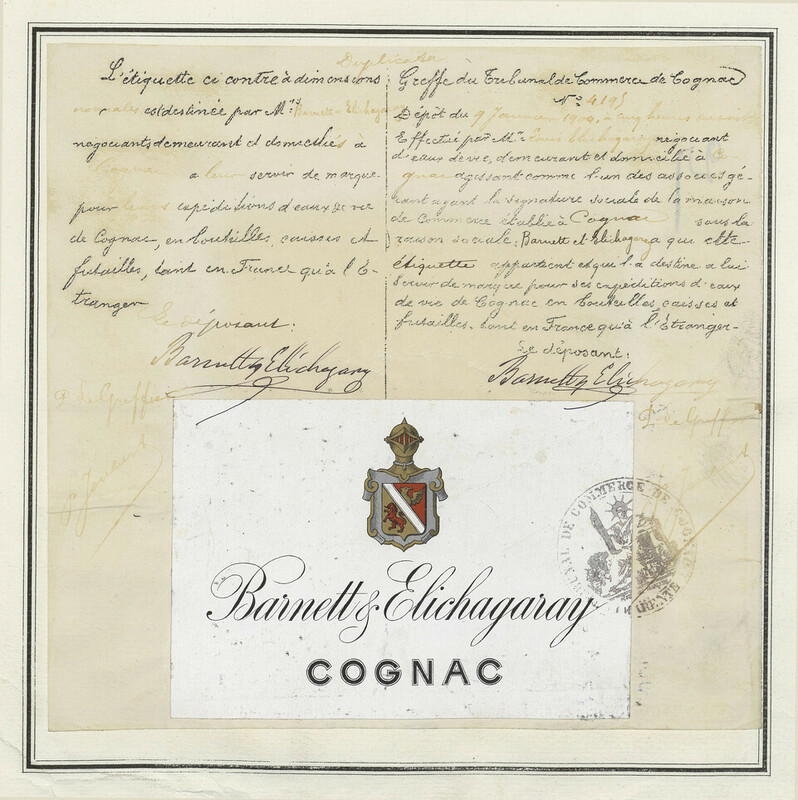 Duplicata
L'étiquette ci contre à dimensions
normales est destinée par M.rs Barnett & Elichagaray
négociants demeurant et domiciliés à
Cognac a leur servir de marque
pour leurs expéditions d'eaux de vie
de Cognac, en bouteilles, caisses et
futailles, tant en France qu'à l'É-
tranger
Le déposant:
Barnett & Elichagaray
P. le Greffier
Greffe du Tribunal de Commerce de Cognac
N° 4195
Dépôt du 9 Janvier 1904, à cinq heures
Effectué par M. Louis Elichagaray négociant
d'eaux de vie, demeurant et domicilié à Co-
gnac agissant comme l'un des associés gé-
rant ayant la signature sociale de la maison
de Commerce établie à Cognac sous la
raison sociale: Barnett et Elichagaray a qui cette
étiquette appartient et qui l'a destine a lui
servir de marque pour ses expéditions d'eaux
de vie de Cognac en bouteilles, caisses et
futailles, tant en France qu'à l'Étranger-
Le déposant:
Barnett & Elichagaray
P. le Greffier
Barnett & Elichagaray
COGNAC
TRIBUNAL DE COMMERCE DE COGNAC
CHARENTE